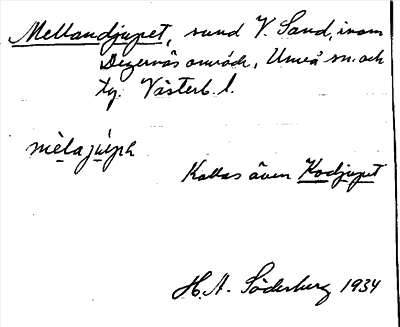 Mellandjupet, sund V. Sand, inom
Degernäs område, Umeå sn. och
tg. Västerb. l.
mèlajúph
Kallas även Kodjupet
H. A. Söderberg 1934